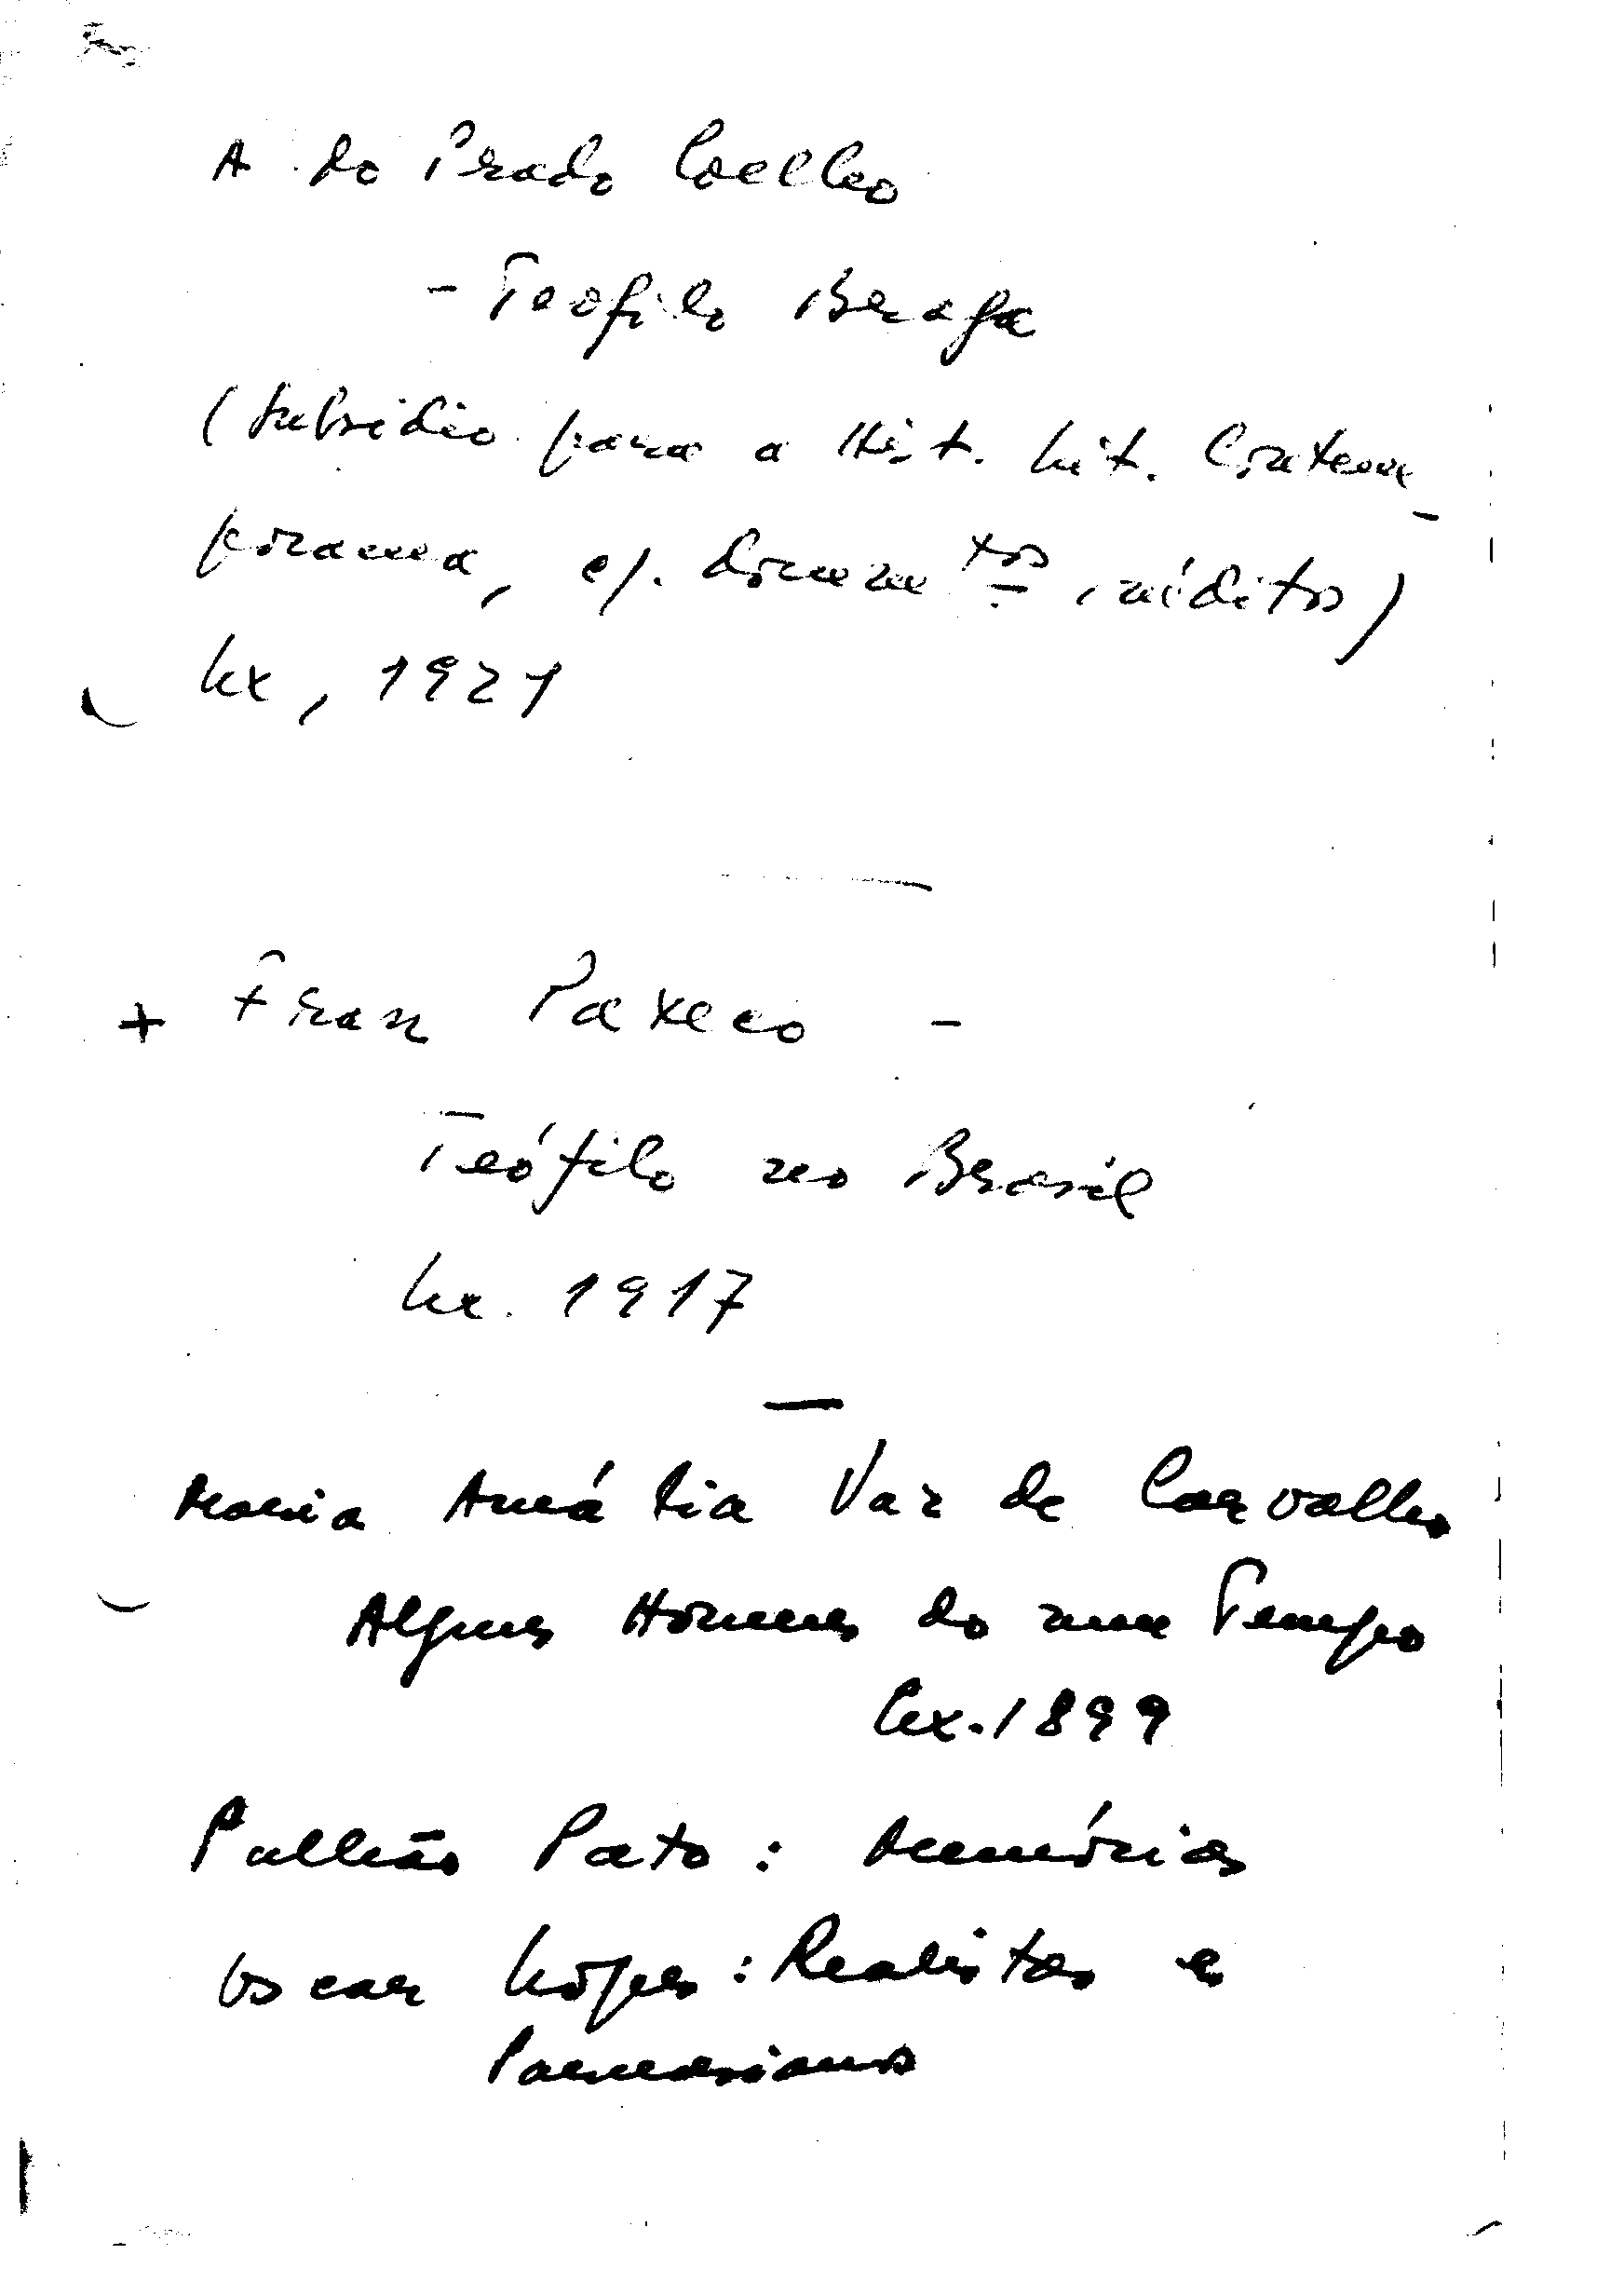 A do Prado Coelho
- Teofilo Braga
(Subsidio para a Hist. Lit. Contem-
poranea, c/. Documentos inéditos)
Lx, 1921
+ Fran Paxeco -
Teófilo no Brasil
Lx. 1917
Maria Amália Vaz de Carvalho
Alguns Homens do meu Tempo
Lx. 1899
Bulhão Pato: Memórias
Oscar Lopes: Realistas e
Parnasianos